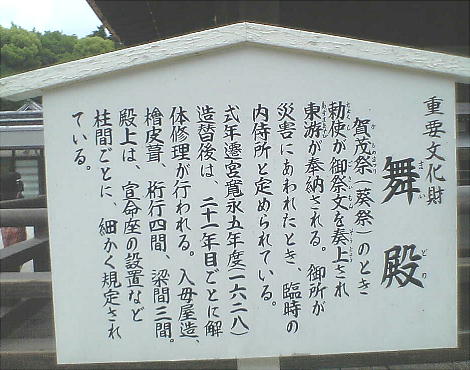 重要文化財
舞殿
まいどの
賀茂祭(葵祭)のとき
勅使が御祭文を奏上され
東游が奉納される。御所が
災害にあわれたとき、臨時の
内侍所と定められている。
式年遷宮寛永五年度(一六二八)
造替後は、二十一年目ごとに解
体修理が行われる。入母屋造、
檜皮葺、桁行四間、梁間三間。
殿上は、宣命座の設置など
柱間ごとに、細かく規定され
ている。